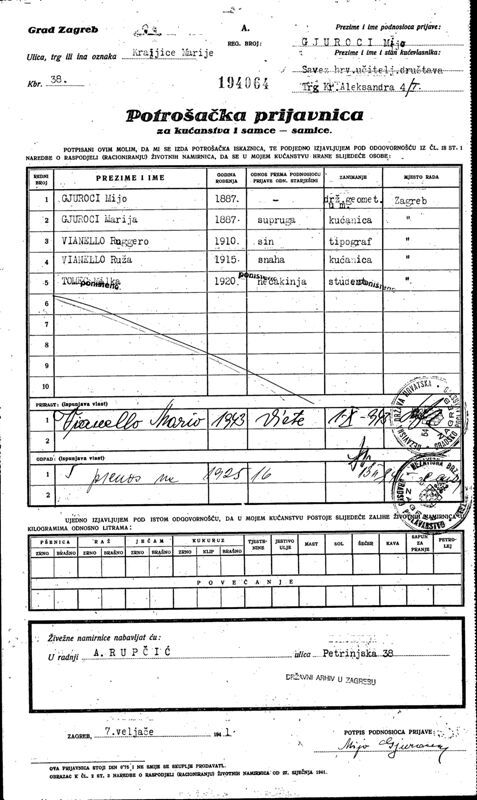 Grad Zagreb
A.
Prezime i ime podnosioca prijave:
REG. BROJ:
GJUROCI Mijo
Ulica, trg ili ina oznaka Kraljice Marije
Prezime i ime i stan kućevlasnika:
Savez hrv.učitelj.društava
Kbr. 38.
194064
Trg Kr.Aleksandra 4/I.
Potrošačka prijavnica
za kućanstva i samce — samice.
POTPISANI OVIM MOLIM, DA MI SE IZDA POTROŠAČKA ISKAZNICA, TE PODJEDNO IZJAVLJUJEM POD ODGOVORNOŠĆU IZ ČL. 18 ST. 1
NAREDBE O RASPODJELI (RACIONIRANJU) ŽIVOTNIH NAMIRNICA, DA SE U MOJEM KUĆANSTVU HRANE SLIJEDEĆE OSOBE:
REDNI BROJ PREZIME I IME GODINA ROĐENJA ODNOS PREMA PODNOSIOCU PRIJAVE ODN. STARJEŠINI ZANIMANJE MJESTO RADA
1 GJUROCI Mijo 1887. – drž.geomet. u m. Zagreb
2 GJUROCI Marija 1887. supruga kućanica "
3 VIANELLO Ruggero 1910. sin tipograf "
4 VIANELLO Ruža 1915. snaha kućanica "
5 poništeno 1920. poništeno nećakinja student poništeno "
6
7
8
9
10
PRIRAST: (Ispunjava vlast)
1 Vianello Mario 1943 dijete
2
OTPAD: (Ispunjava vlast)
1 5 1925 16
2
UJEDNO IZJAVLJUJEM POD ISTOM ODGOVORNOŠĆU, DA U MOJEM KUĆANSTVU POSTOJE SLIJEDEĆE ZALIHE ŽIVOTNIH NAMIRNICA
KILOGRAMIMA ODNOSNO LITRAMA:
PŠENICA RAŽ JEČAM KUKURUZ TJESTENINE JESTIVO ULJE MAST SOL ŠEĆER KAVA SAPUN ZA PRANJE PETROLEJ
ZRNO BRAŠNO ZRNO BRAŠNO ZRNO BRAŠNO ZRNO KLIP BRAŠNO
POVEĆANJE
Živežne namirnice nabavljat ću:
U radnji A. RUPČIĆ ulica Petrinjska 38
DRŽAVNI ARHIV U ZAGREBU
ZAGREB, 7.veljače 1941.
POTPIS PODNOSIOCA PRIJAVE:
Mijo
OVA PRIJAVNICA STOJI DIN 0'75 I NE SMIJE SE SKUPLJE PRODAVATI.
OBRAZAC K ČL. 2 ST. 2 NAREDBE O RASPODJELI (RACIONIRANJU) ŽIVOTNIH NAMIRNICA OD 27. SIJEČNJA 1941.